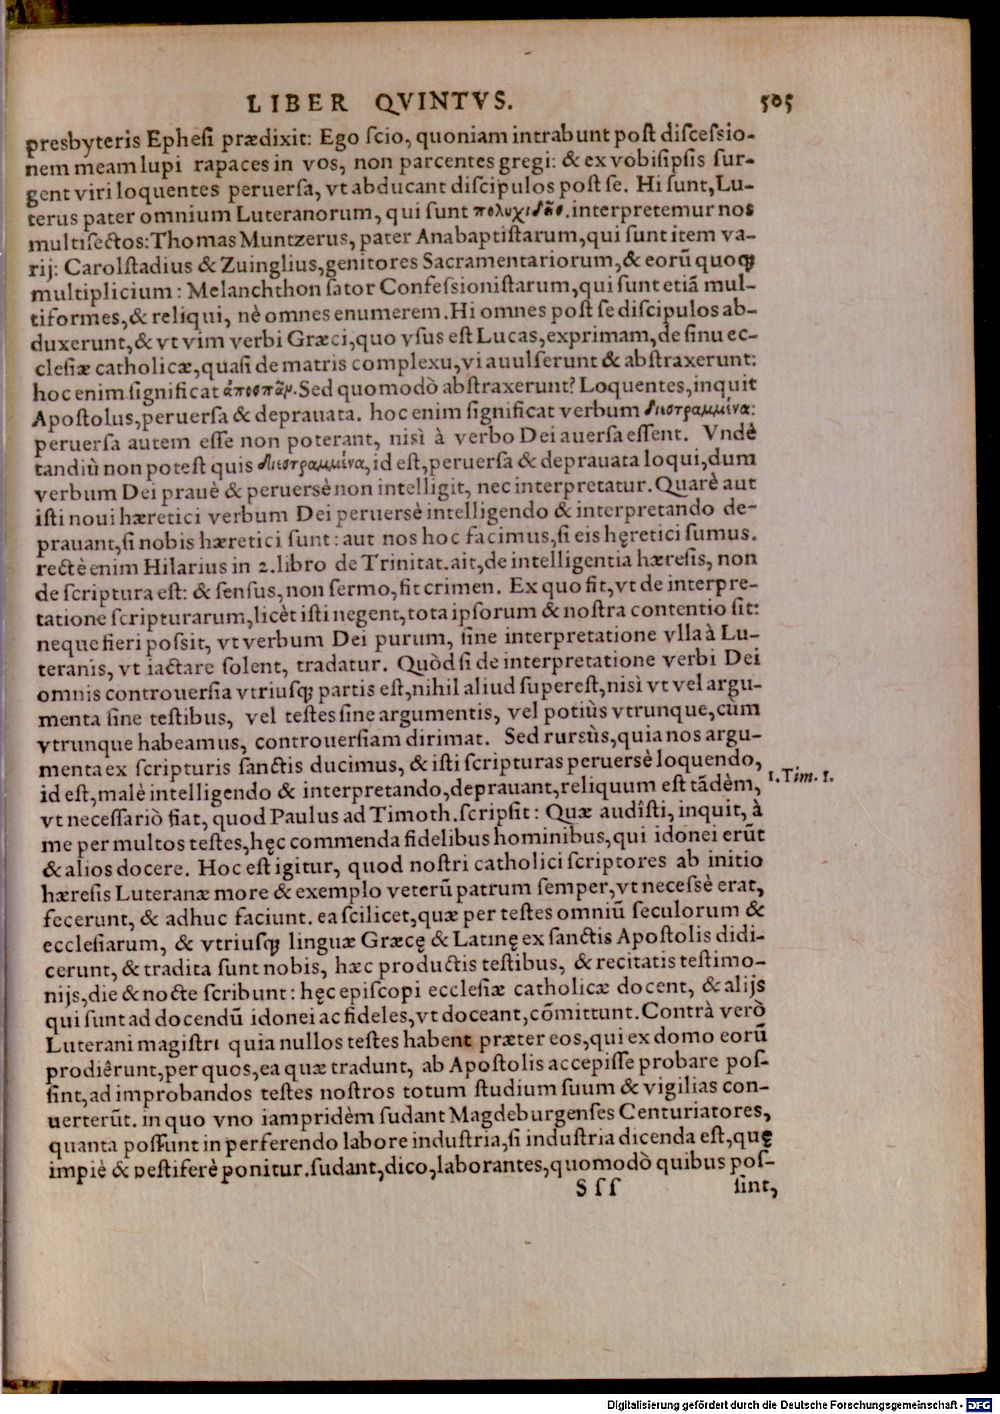 LIBER QVINTVS. 505
presbyteris Ephesi prædixit: Ego scio, quoniam intrabunt post discessio-
nem meam lupi rapaces in vos, non parcentes gregi: & ex vobisipsis sur-
gent viri loquentes peruersa, vt abducant discipulos post se. Hi sunt, Lu-
terus pater omnium Luteranorum, qui sunt interpretemur nos
multisectos: Thomas Muntzerus, pater Anabaptistarum, qui sunt item va-
rij: Carolstadius & Zuinglius, genitores Sacramentariorum, & eorū quoqꝫ
multiplicium: Melanchthon sator Confessionistarum, qui sunt etiā mul-
tiformes, & reliqui, nè omnes enumerem. Hi omnes post se discipulos ab-
duxerunt, & vt vim verbi Græci, quo vsus est Lucas, exprimam, de sinu ec-
clesiæ catholicæ, quasi de matris complexu, vi auulserunt & abstraxerunt:
hoc enim significat ἀποσπᾶν. Sed quomodò abstraxerunt? Loquentes, inquit
Apostolus, peruersa & deprauata. hoc enim significat verbum διεστραμμένα:
peruersa autem esse non poterant, nisì à verbo Dei auersa essent. Vndè
tandiù non potest quis διεστραμμένα, id est, peruersa & deprauata loqui, dum
verbum Dei prauè & peruersè non intelligit, nec interpretatur. Quarè aut
isti noui hæretici verbum Dei peruersè intelligendo & interpretando de-
prauant, si nobis hæretici sunt: aut nos hoc facimus, si eis hęretici sumus.
rectè enim Hilarius in 2. libro de Trinitat. ait, de intelligentia hæresis, non
de scriptura est: & sensus, non sermo, fit crimen. Ex quo fit, vt de interpre-
tatione scripturarum, licèt isti negent, tota ipsorum & nostra contentio sit:
neque fieri possit, vt verbum Dei purum, sine interpretatione vlla à Lu-
teranis, vt iactare solent, tradatur. Quòd si de interpretatione verbi Dei
omnis controuersia vtriusqꝫ partis est, nihil aliud superest, nisì vt vel argu-
menta sine testibus, vel testes sine argumentis, vel potiùs vtrunque, cùm
vtrunque habeamus, controuersiam dirimat. Sed rursùs, quia nos argu-
menta ex scripturis sanctis ducimus, & isti scripturas peruersè loquendo,
id est, malè intelligendo & interpretando, deprauant, reliquum est tādèm, 1. Tim. 1.
vt necessariò fiat, quod Paulus ad Timoth. scripsit: Quæ audîsti, inquit, à
me per multos testes, hęc commenda fidelibus hominibus, qui idonei erūt
& alios docere. Hoc est igitur, quod nostri catholici scriptores ab initio
hæresis Luteranæ more & exemplo veterū patrum semper, vt necessè erat,
fecerunt, & adhuc faciunt. ea scilicet, quæ per testes omniū seculorum &
ecclesiarum, & vtriusqꝫ linguæ Græcę & Latinę ex sanctis Apostolis didi-
cerunt, & tradita sunt nobis, hæc productis testibus, & recitatis testimo-
nijs, die & nocte scribunt: hęc episcopi ecclesiæ catholicæ docent, & alijs
qui sunt ad docendū idonei ac fideles, vt doceant, cōmittunt. Contrà verò
Luterani magistri quia nullos testes habent præter eos, qui ex domo eorū
prodiêrunt, per quos, ea quæ tradunt, ab Apostolis accepisse probare pos-
sint, ad improbandos testes nostros totum studium suum & vigilias con-
uerterūt. in quo vno iampridèm sudant Magdeburgenses Centuriatores,
quanta possunt in perferendo labore industria, si industria dicenda est, quę
impiè & pestiferè ponitur. sudant, dico, laborantes, quomodò quibus pos-
S s s sint,
Digitalisierung gefördert durch die Deutsche Forschungsgemeinschaft - DFG